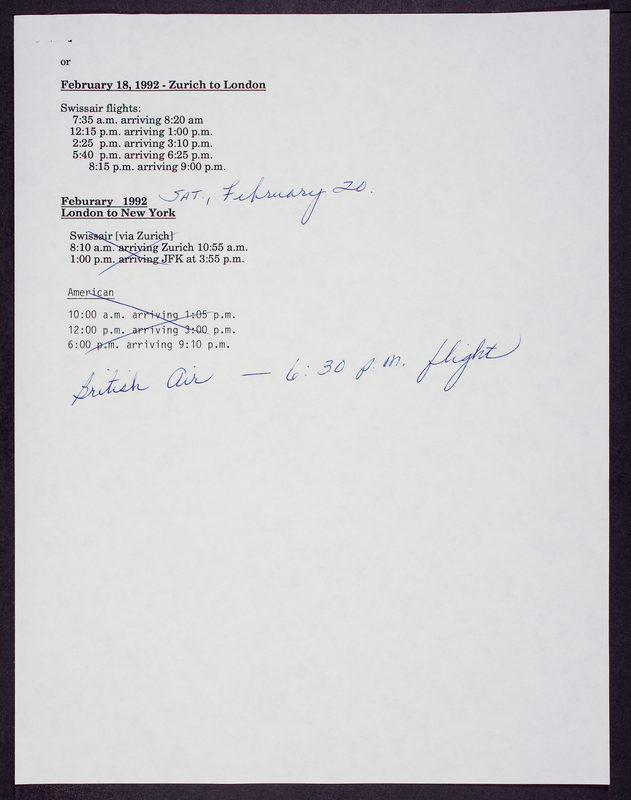 or
February 18, 1992 - Zurich to London
Swissair flights:
7:35 a.m. arriving 8:20 am
12:15 p.m. arriving 1:00 p.m.
2:25 p.m. arriving 3:10 p.m.
5:40 p.m. arriving 6:25 p.m.
8:15 p.m. arriving 9:00 p.m.
Feburary 1992 SAT., February 20.
London to New York
Swissair [via Zurich]
8:10 a.m. arriving Zurich 10:55 a.m.
1:00 p.m. arriving JFK at 3:55 p.m.
American
10:00 a.m. arriving 1:05 p.m.
12:00 p.m. arriving 3:00 p.m.
6:00 p.m. arriving 9:10 p.m.
British Air — 6:30 p.m. flight